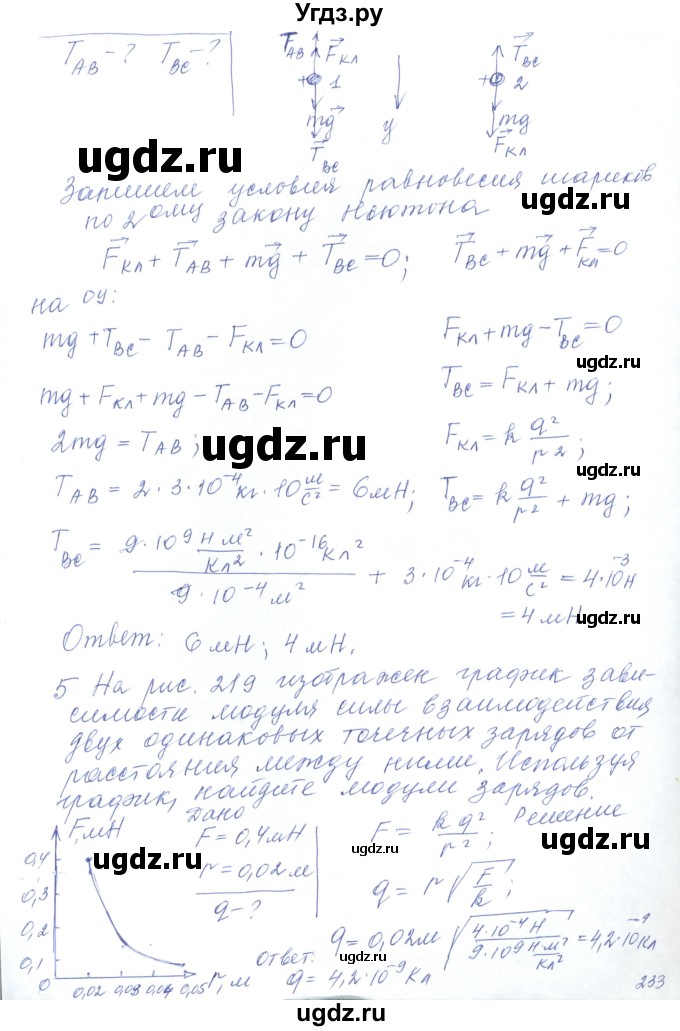 Угдз.ру
T_AB - ? T_BC - ?
T_AB F_кл
+ 1
mg
T_BC
y
T_BC
+ 2
mg
F_кл
ugdz.ru
ugdz.ru
Запишем условия равновесия шариков
по 2ому закону Ньютона
F_кл + T_AB + mg + T_BC = 0; T_BC + mg + F_кл = 0
на оу:
mg + T_BC - T_AB - F_кл = 0 F_кл + mg - T_BC = 0
ugdz.ru
mg + F_кл + mg - T_AB - F_кл = 0 T_BC = F_кл + mg;
2mg = T_AB; ugdz.ru F_кл = k q²/r²;
ugdz.ru
T_AB = 2·3·10⁻⁴кг·10 м/с² = 6 мН; T_BC = k q²/r² + mg;
T_BC = 9·10⁹ Н м²/Кл² · 10⁻¹⁶ Кл² / 9·10⁻⁴ м² + 3·10⁻⁴ кг·10 м/с² = 4·10⁻³ Н
= 4 мН
ugdz.ru
Ответ: 6 мН; 4 мН.
5 На рис. 219 изображен график зави-
симости модуля силы взаимодействия
ugdz.ru
двух одинаковых точечных зарядов от
расстояния между ними. Используя
график, найдите модули зарядов.
ugdz.ru
Дано Решение
F, мН
F = 0,4 мН F = k q²/r²;
0,4
ugdz.ru
ugdz.ru
r = 0,02 м q = r √F/k;
0,3
q - ?
0,2
q = 0,02 м √4·10⁻⁴ Н / 9·10⁹ Н·м²/Кл² = 4,2·10⁻⁹ Кл
0,1
Ответ:
q = 4,2·10⁻⁹ Кл
0 0,02 0,03 0,04 0,05 r, м
ugdz.ru
ugdz.ru
233